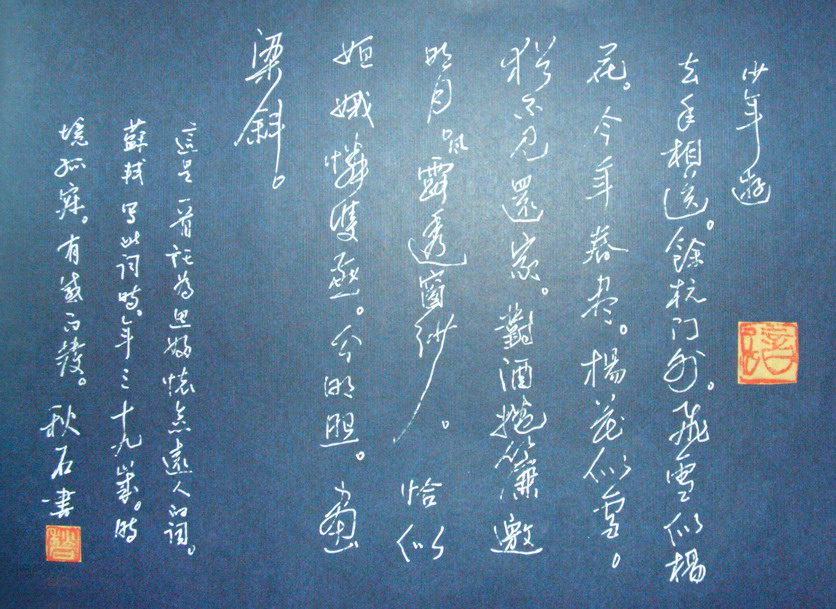 少年遊
去年相送。餘杭门外。飛雪似楊
花。今年春尽。楊花似雪。
猶不見還家。對酒捲簾邀
明月。風露透窗纱。恰似
姮娥憐雙燕。分明照。画
梁斜。
這是一首託為思婦懷念遠人的词。
蘇軾写此词時。年三十九歲。時
境孤寂。有感而發。秋石書